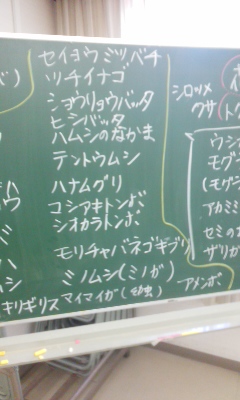 セイヨウミツバチ
ツチイナゴ
ショウリョウバッタ
ヒシバッタ
ハムシのなかま
テントウムシ
ハナムグリ
コシアキトンボ
シオカラトンボ
モリチャバネゴキブリ
ミノムシ(ミノガ)
キリギリス マイマイガ(幼虫)
シロツメ
クサ
ウシ
モグ
(モグ
アカミミ
セミの
ザリガ
アメンボ